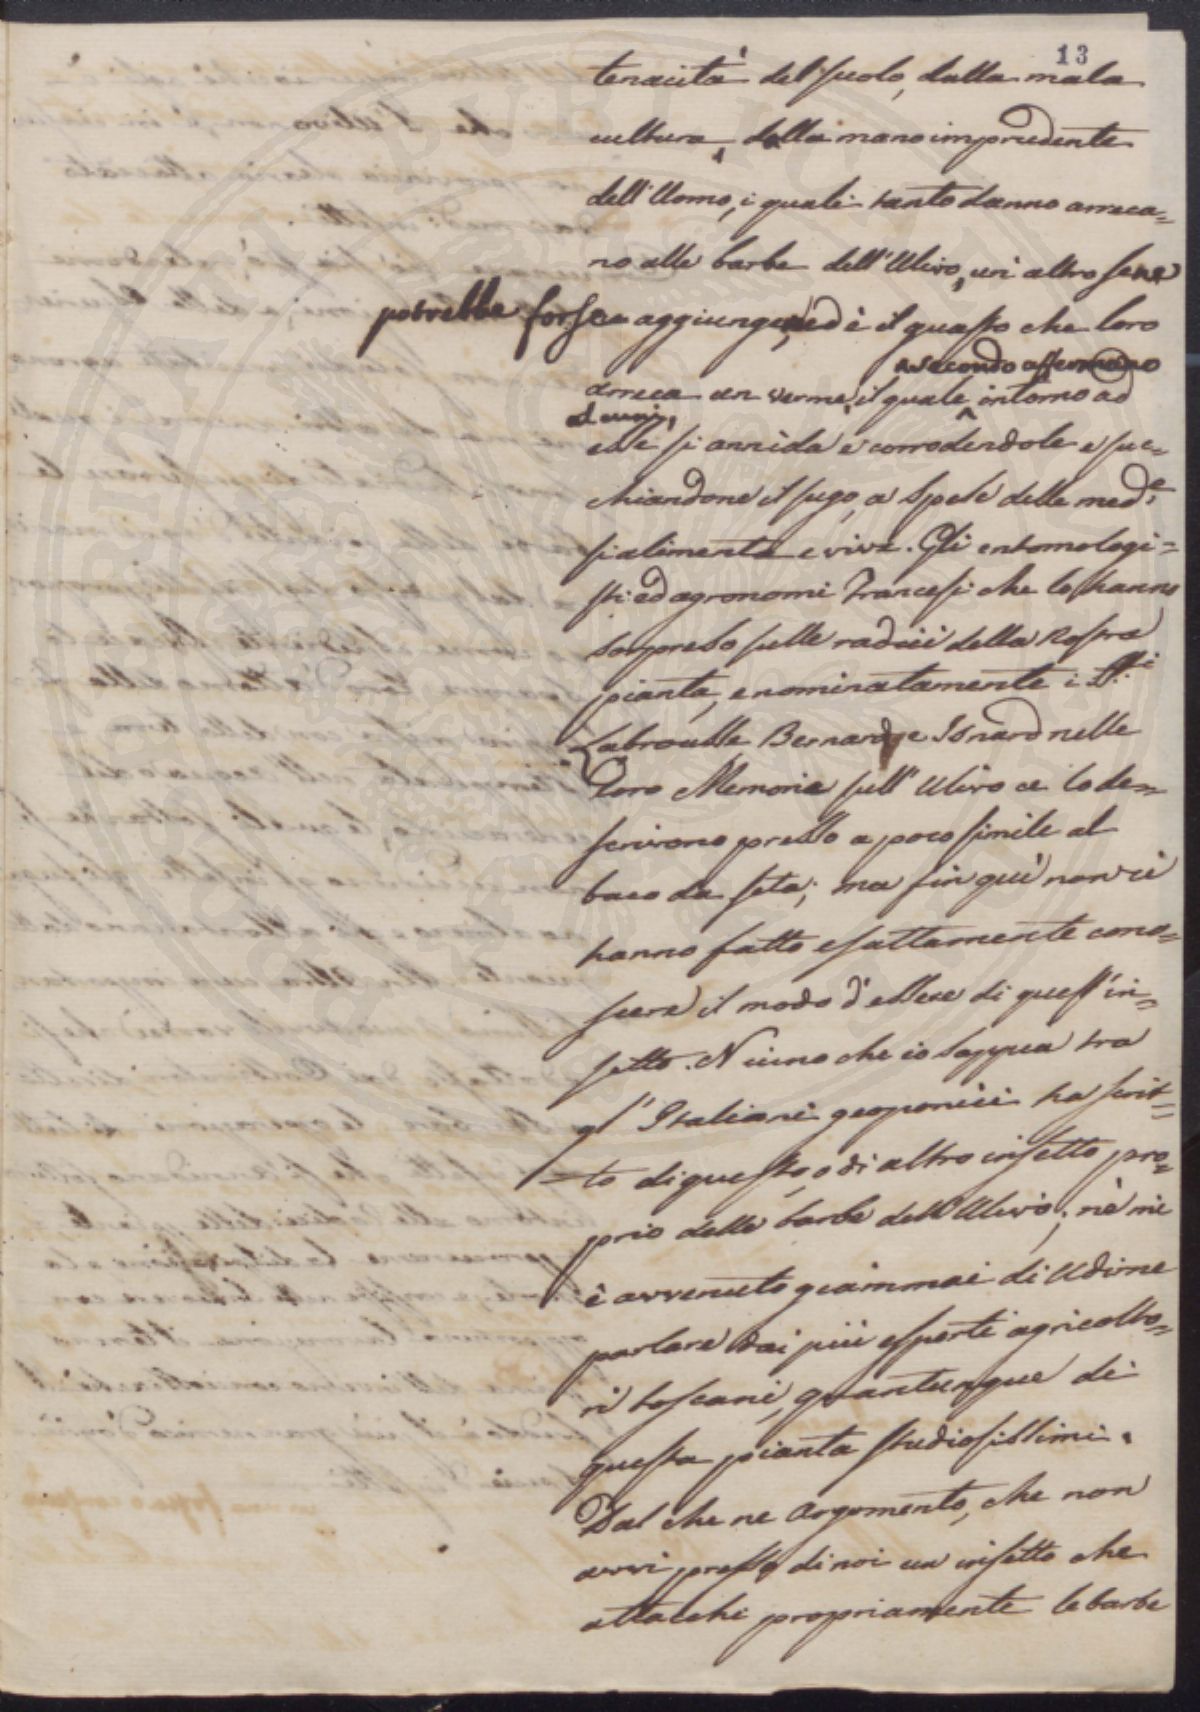 13
tenacità del suolo, dalla mala
cultura, dalla mano imprudente
dell'Uomo, i quali tanto danno arreca=
no alle barbe dell'Ulivo, un altro se ne
potrebbe forse aggiungere, ed è il guasto che loro
secondo affermano
arreca un verme, il quale intorno ad
alcuni,
esse si annida e corrodendole e suc=
chiandone il sugo, a spese delle med.e
si alimenta e vive. Gli entomologi=
sti ed agronomi Francesi che lo hanno
sorpreso sulle radici della nostra
pianta, e nominatamente i SS.ri
Labroulle, Bernard, e Isnard nelle
loro Memorie sull'Ulivo ce lo de=
scrivono presso a poco simile al
baco da seta; ma fin quì non ci
hanno fatto esattamente cono=
scere il modo d'essere di quest'in=
setto. Niuno che io sappia tra
gl'Italiani geoponici ha scrit=
=to di questo, o di altro insetto pro=
prio delle barbe dell'Ulivo; nè mi
è avvenuto giammai di udirne
parlare dai più esperti agricolto=
ri toscani, quantunque di
questa pianta studiosissimi.
Dal che ne argomento, che non
avvi presso di noi un insetto che
attacchi propriamente le barbe